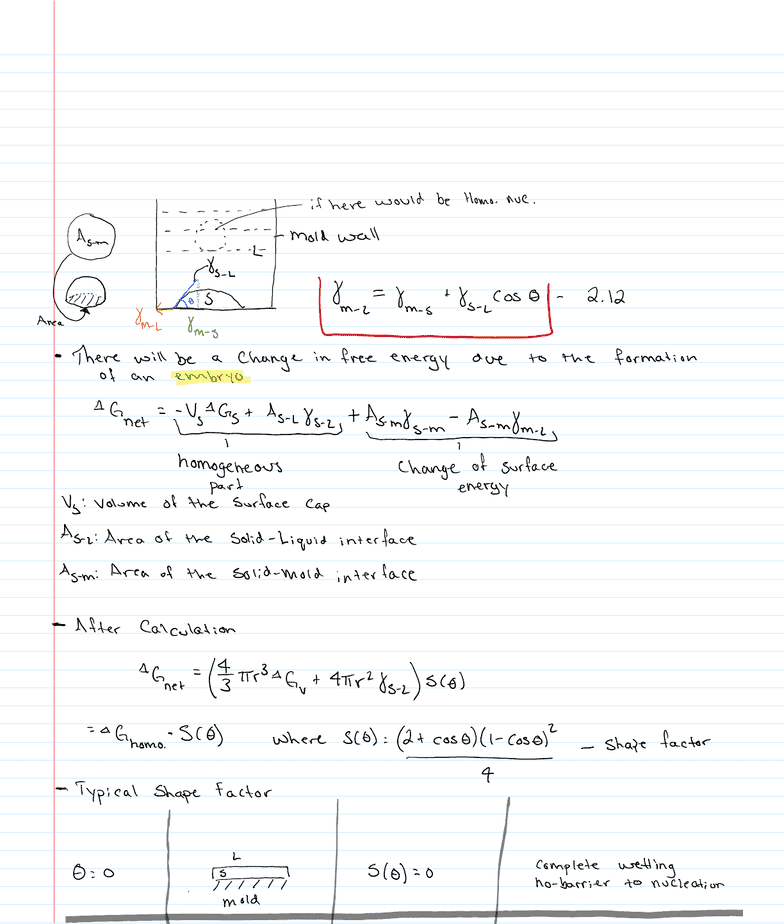 if here would be Homo. nuc.
A_s-m
mold wall
L
γ_s-L
θ
S
γ_m-L = γ_m-s + γ_s-L cos θ - 2.12
Area
γ_m-L
γ_m-s
• There will be a change in free energy due to the formation
of an embryo
ΔG_net = -V_s ΔG_s + A_s-L γ_s-L + A_s-m γ_s-m - A_s-m γ_m-L
homogeneous
part
Change of surface
energy
V_s: Volume of the Surface Cap
A_s-L: Area of the Solid-Liquid interface
A_s-m: Area of the Solid-mold interface
- After Calculation
ΔG_net = (4/3 πr³ ΔG_v + 4πr² γ_s-L) S(θ)
= ΔG_homo. · S(θ) where S(θ) : (2 + cos θ)(1 - cos θ)² / 4 - Shape factor
- Typical Shape Factor
θ: 0
L
S
mold
S(θ) = 0
Complete wetting
no-barrier to nucleation